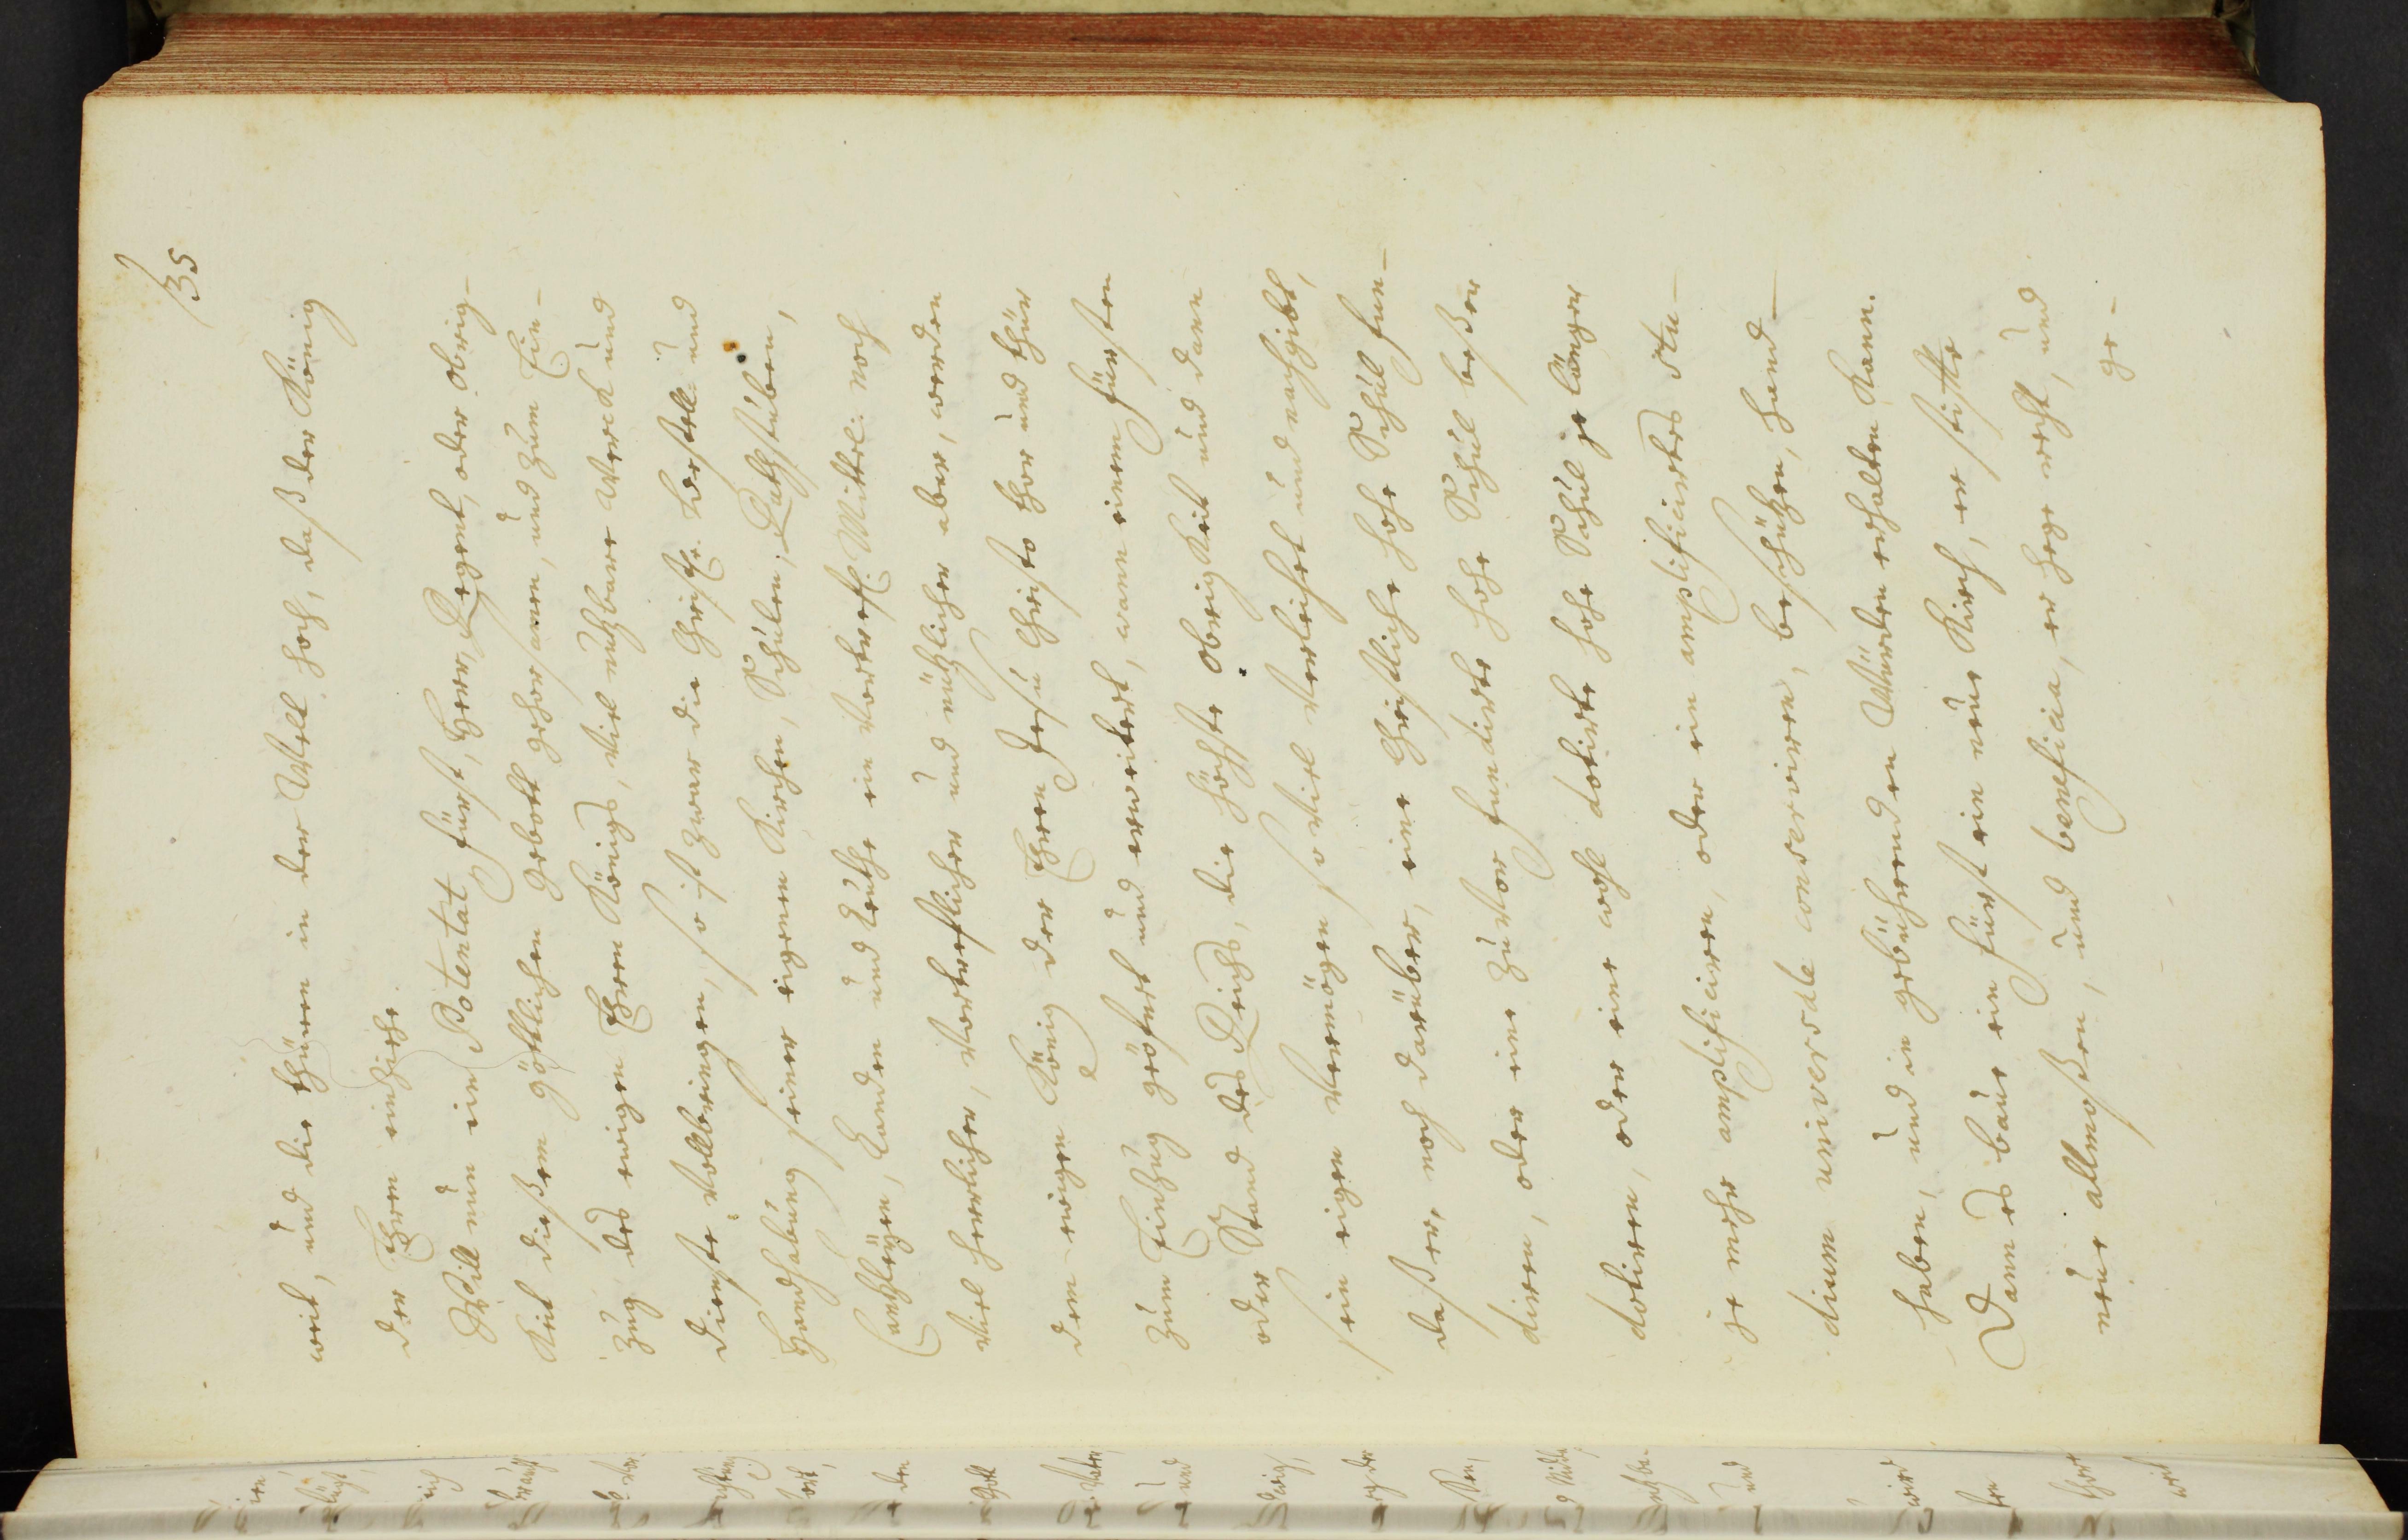 135
weit, und die thüren in der Welt hoch, daß der König
der Ehren einziehe.
Will nun ein Potentat, fürst, Herr, Regent, oder obrig-
keit dießem göttlichen Gebott gehorsamen, und zum Ein-
zug des ewigen Ehren Königs, viel nuzbare Werck und
dienste vollbringen, so ist zwar die Christl. bestell: und
Handhabung seiner eigenen Kirchen, Schulen, Rathstuben,
Cantzleyen, Landen und Leuthe ein vortrefl: Mittel: noch
viel herrlicher, vortreflicher und nützlicher aber, werden
dem ewigen König der Ehren Jesu Christo thor und thür
zum Einzug größert und erweitert, wann einem fürsten
oder Stand des Reichs, die höchste obrigkeit und dann
sein eigen Vermögen so viel verleihet und nachgibt,
daß er, noch darüber, eine Christliche hohe Schul fun-
diren, oder eine zuvor fundirte hohe Schul beßer
dotiren, oder eine wohl dotirte hohe Schul je länger
je mehr amplificiren, oder ein amplificirtes stu-
dium universale conserviren, beschützen, hand-
haben, und in gebührenden Würden erhalten kann.
Dann es baue ein fürst eine neue Kirch, er stifte
neue allmoßen, und beneficia, er hege recht, und
ge-